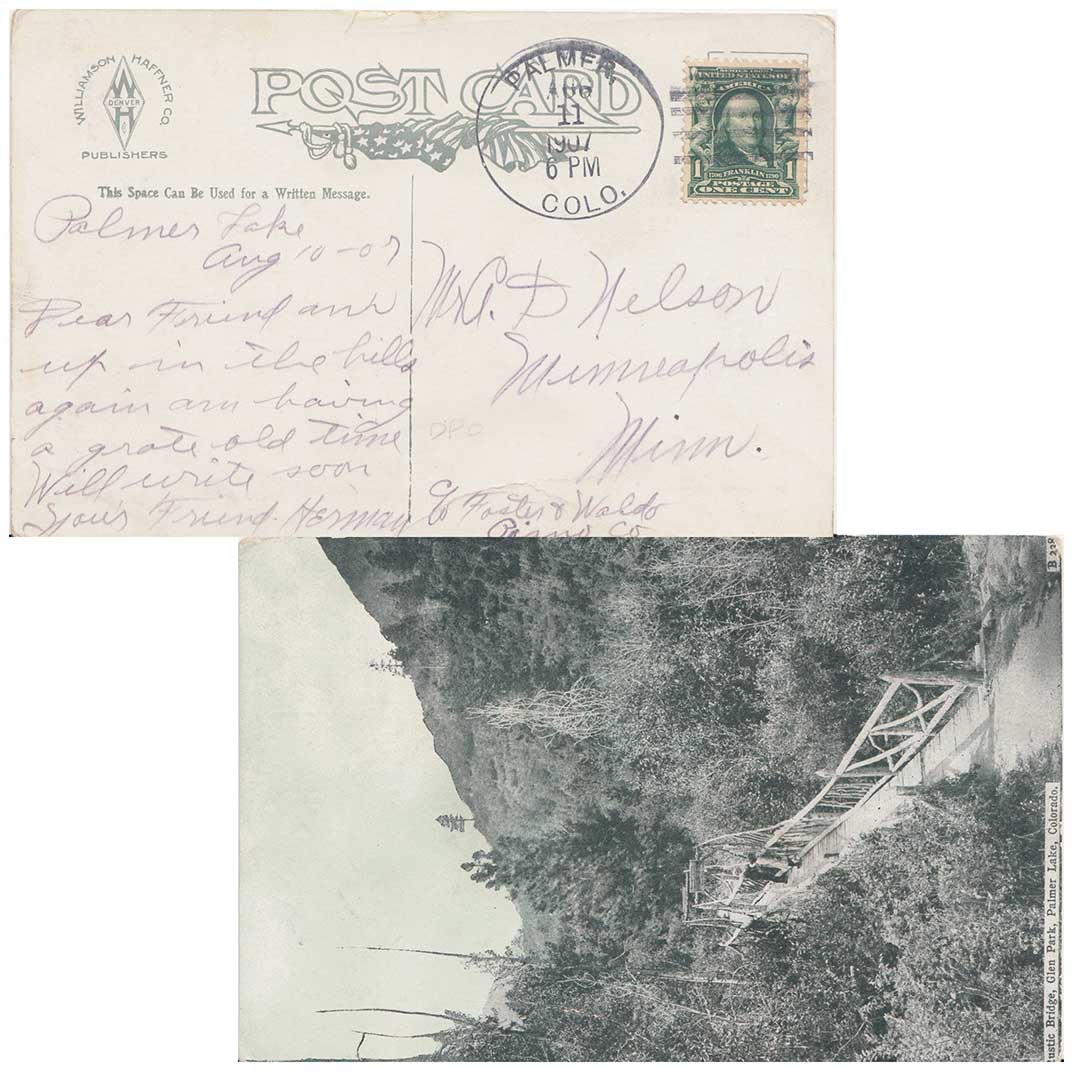 WILLIAMSON HAFFNER CO
W
DENVER
H
PUBLISHERS
POST CARD
PALMER
AUG
11
1907
6 PM
COLO.
SERIES 1902
UNITED STATES OF
AMERICA
1 1706 FRANKLIN 1790 1
POSTAGE
ONE CENT
This Space Can Be Used for a Written Message.
Palmer Lake
Aug 10-07
Dear Friend am
up in the hills
again am having
a grate old time
Will write soon
Your Friend Herman
Mr A. D Nelson
Minneapolis
Minn.
DPO
C/o Foster & Waldo
Piano Co
B 238
Rustic Bridge, Glen Park, Palmer Lake, Colorado.